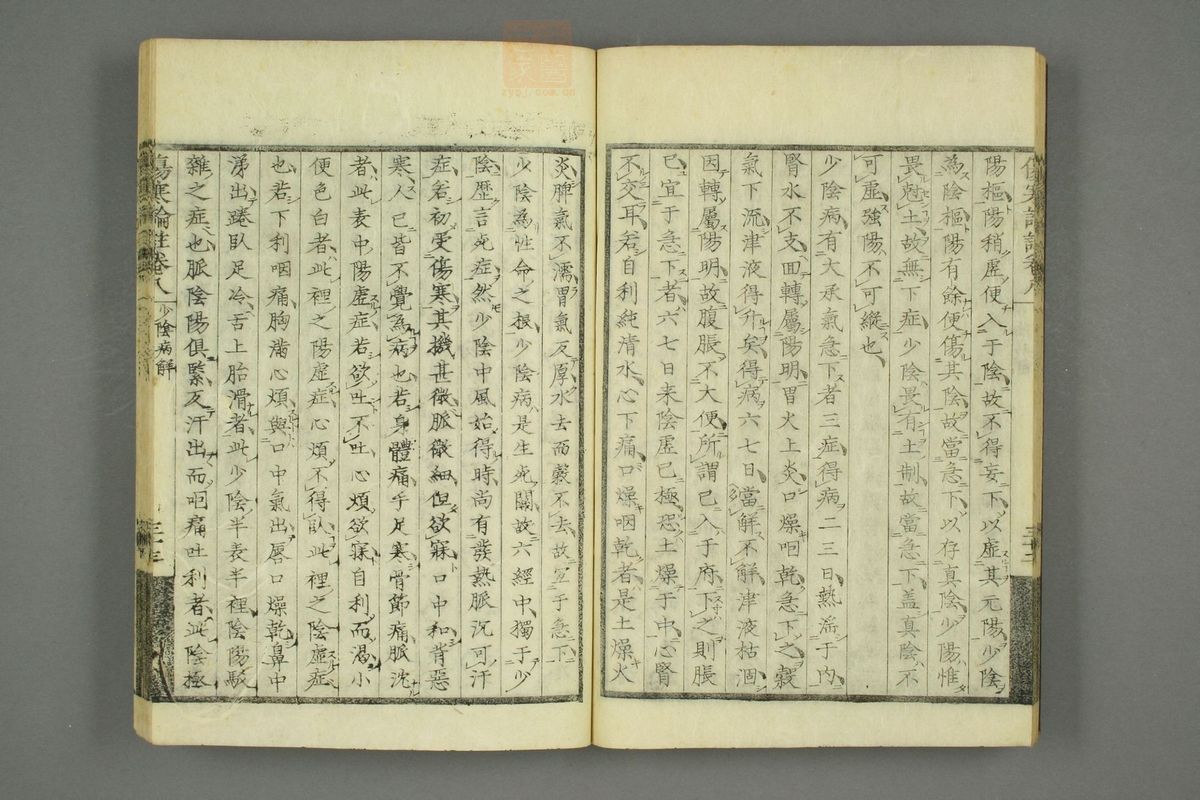 陽樞陽稍虛便入于陰故不得妄下以虛其元陽少陰
為陰樞陽有餘便傷其陰故當急下以存真陰少陽惟
畏尅土故無下症少陰畏有土制故當急下蓋真陰不
可虛強陽不可縱也
少陰病有大承氣急下者三症得病二三日熱淫于内
腎水不支因轉屬陽明胃火上炎口燥咽乾急下之穀
氣下流津液得升矣得病六七日當解不解津液枯涸
因轉屬陽明故腹脹不大便所謂已入于府下之則脹
已宜于急下者六七日来陰虛已極恐土燥于中心腎
不交耳若自利純清水心下痛口燥咽乾者是土燥火
炎脾氣不濡胃氣反厚水去而穀不去故宜于急下
少陰為性命之根少陰病是生死關故六經中獨于少
陰歷言死症然少陰中風始得時尚有發熱脈沉可汗
症若初受傷寒其機甚微脈微細但欲寐口中和背惡
寒人已皆不覺為病也若身體痛手足寒骨節痛脈沈
者此表中陽虛症若欲吐不吐心煩欲寐自利而渴小
便色白者此裡之陽虛症心煩不得臥此裡之陰虛症
也若下利咽痛胸滿心煩與口中氣出唇口燥乾鼻中
涕出踡臥足冷舌上胎滑者此少陰半表半裡陰陽駁
雜之症也脈陰陽俱緊反汗出而咽痛吐利者此陰極
傷寒論註卷八
少陰病解